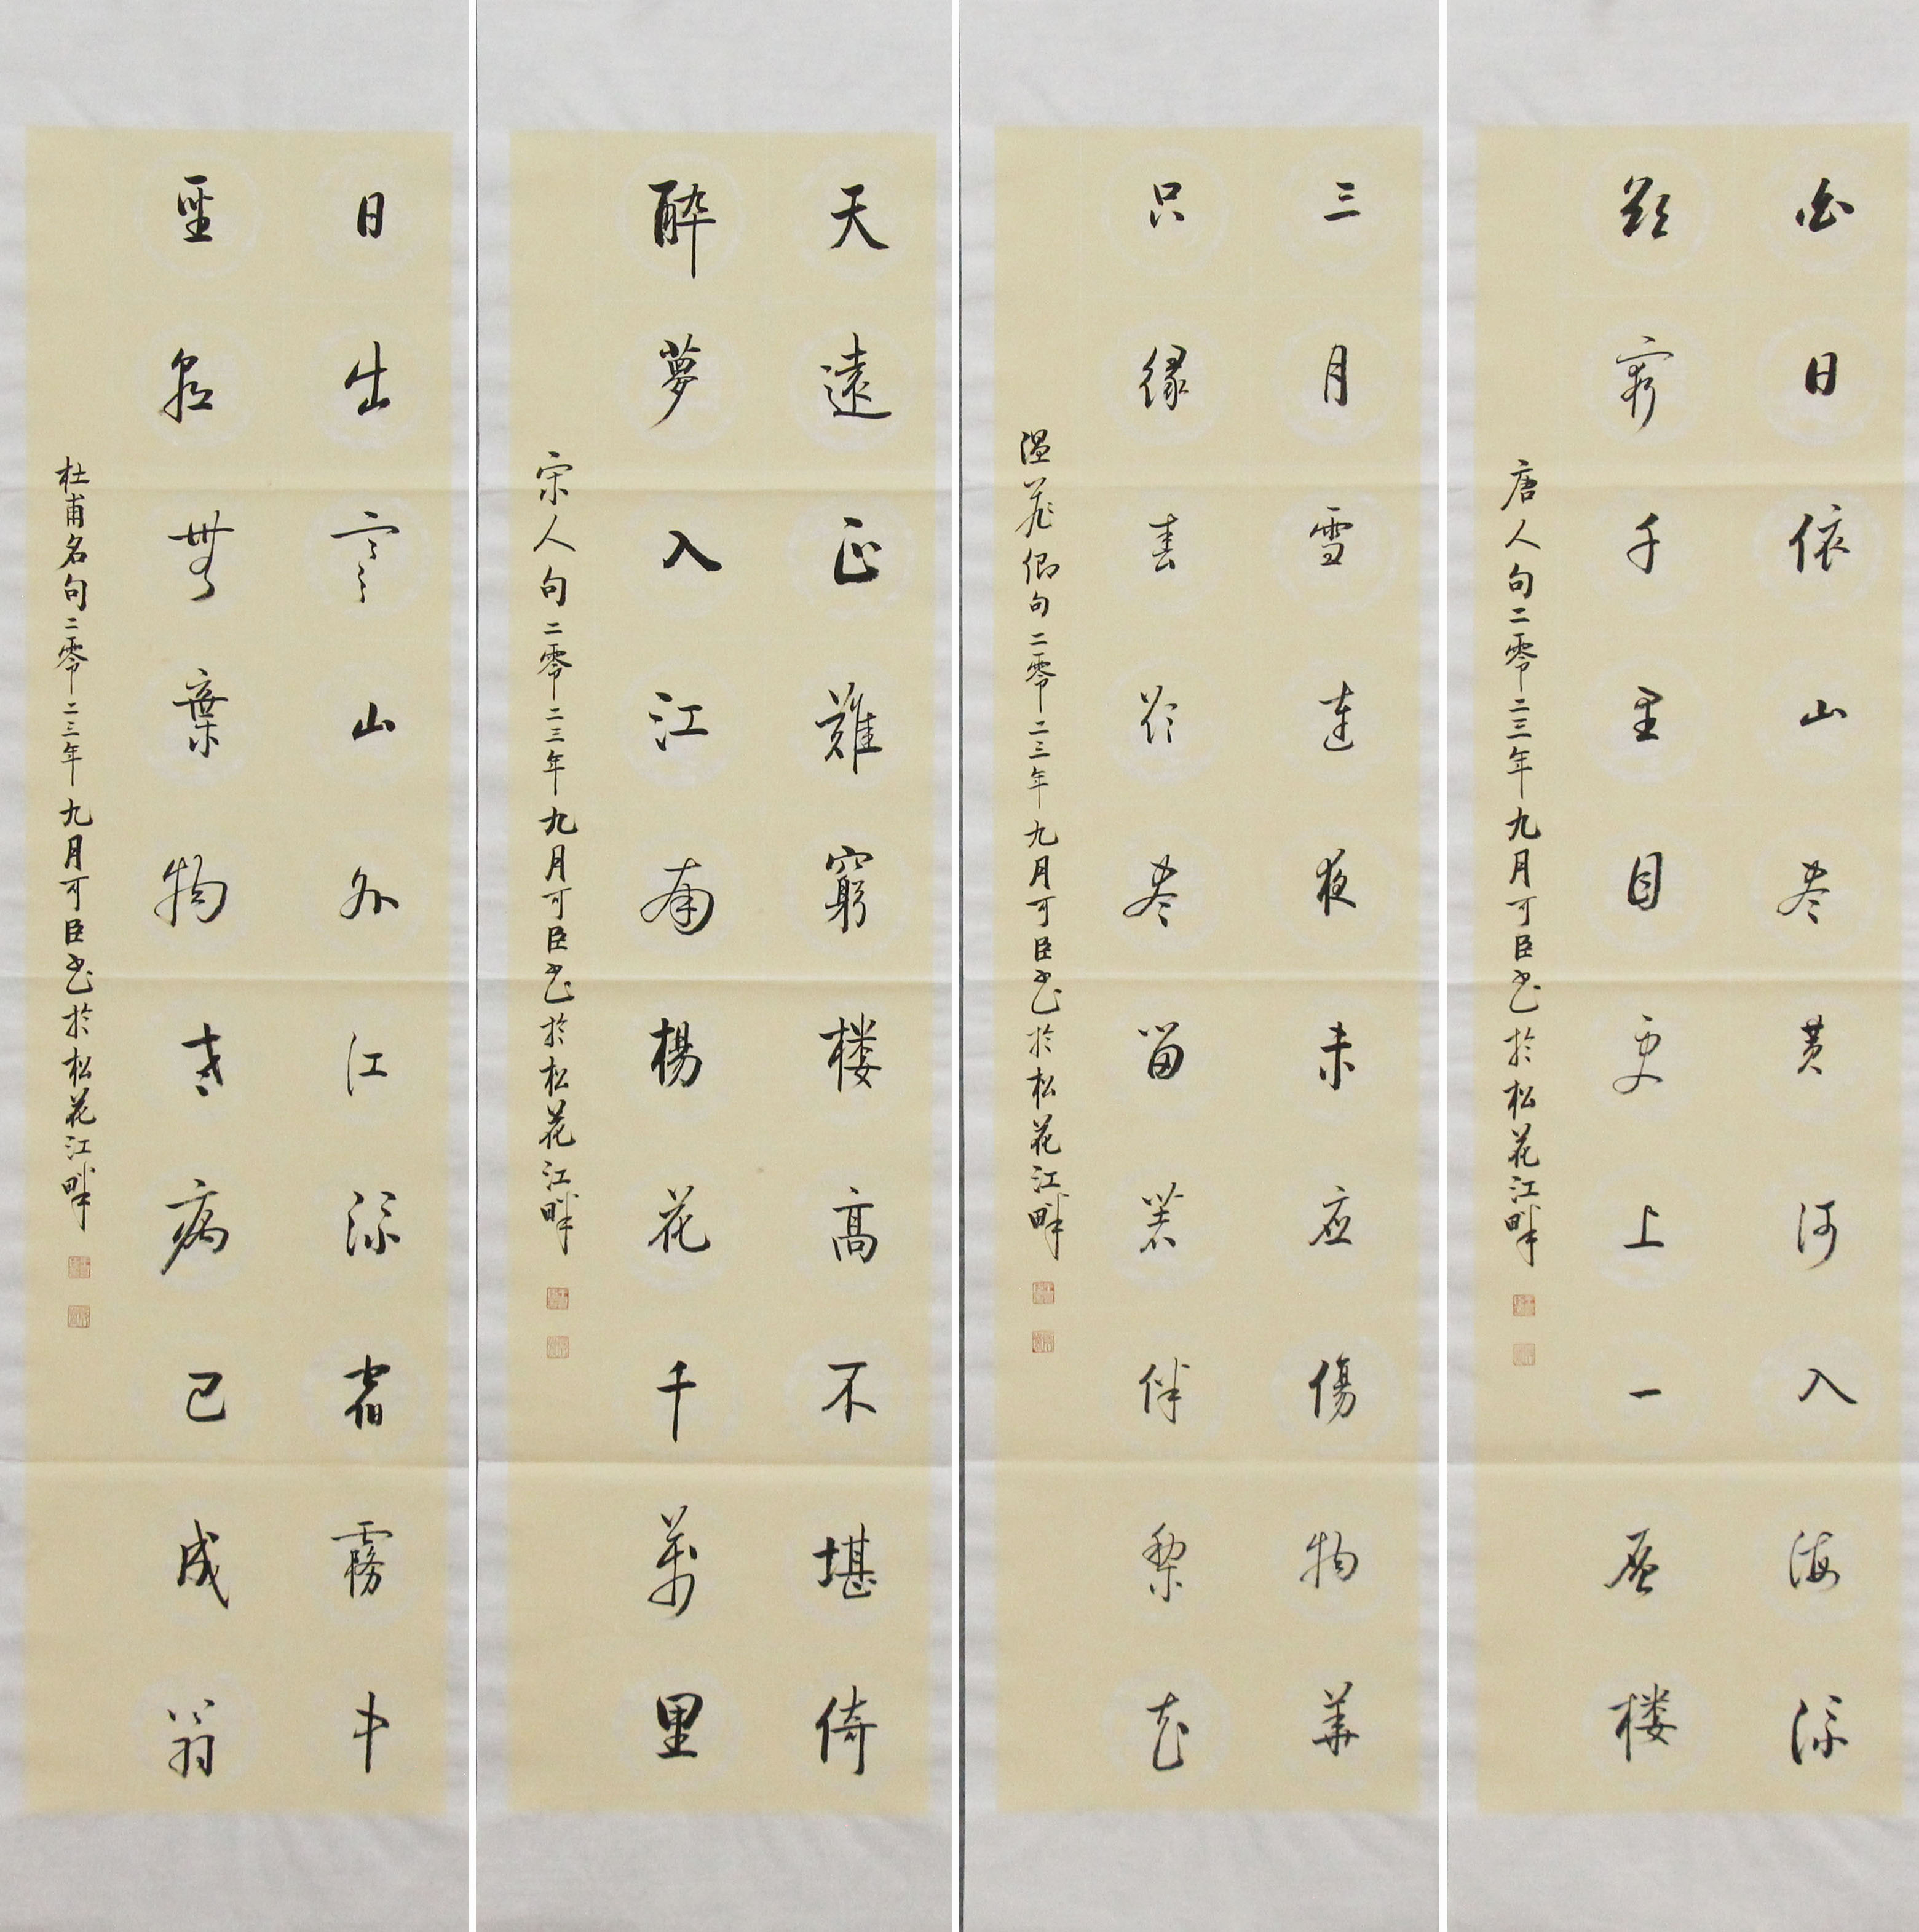 白日依山尽黄河入海流
欲窮千里目更上一层楼
唐人句二零二三年九月可臣书於松花江畔
三月雪連夜未应傷物華
只緣春欲尽留著伴梨花
温飛卿句二零二三年九月可臣书於松花江畔
天遠正難窮楼高不堪倚
醉夢入江南楊花千萬里
宋人句二零二三年九月可臣书於松花江畔
日出寒山外江流宿霧中
聖朝無棄物老病已成翁
杜甫名句二零二三年九月可臣书於松花江畔